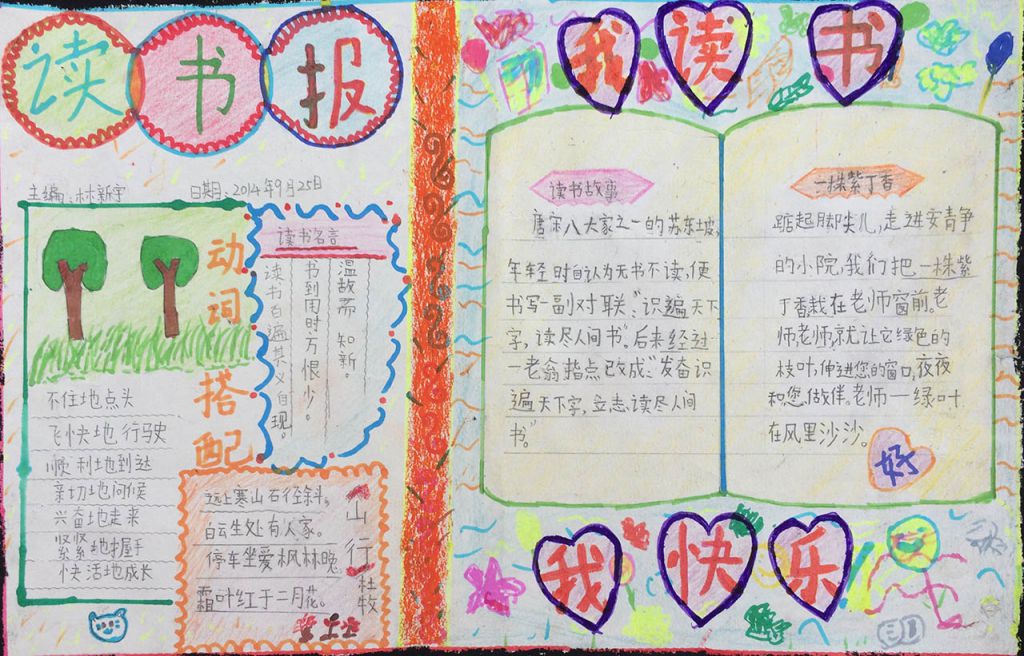 读书报
主编:林新宇 日期:2014年9月25日
动词搭配
不住地点头
飞快地行驶
顺利地到达
亲切地问候
兴奋地走来
紧紧地握手
快活地成长
读书名言
温故而知新。
书到用时方恨少。
读书百遍其义自现。
山行
杜牧
远上寒山石径斜,
白云生处有人家。
停车坐爱枫林晚,
霜叶红于二月花。
我读书
读书故事
唐宋八大家之一的苏东坡,
年轻时自认为无书不读,便
书写一副对联:“识遍天下
字,读尽人间书”。后来经过
一老翁指点改成:“发奋识
遍天下字,立志读尽人间
书。”
一株紫丁香
踮起脚尖儿,走进安静
的小院,我们把一株紫
丁香栽在老师窗前。老
师老师,就让它绿色的
枝叶,伸进您的窗口,夜夜
和您做伴。老师—绿叶
在风里沙沙。
好
我快乐